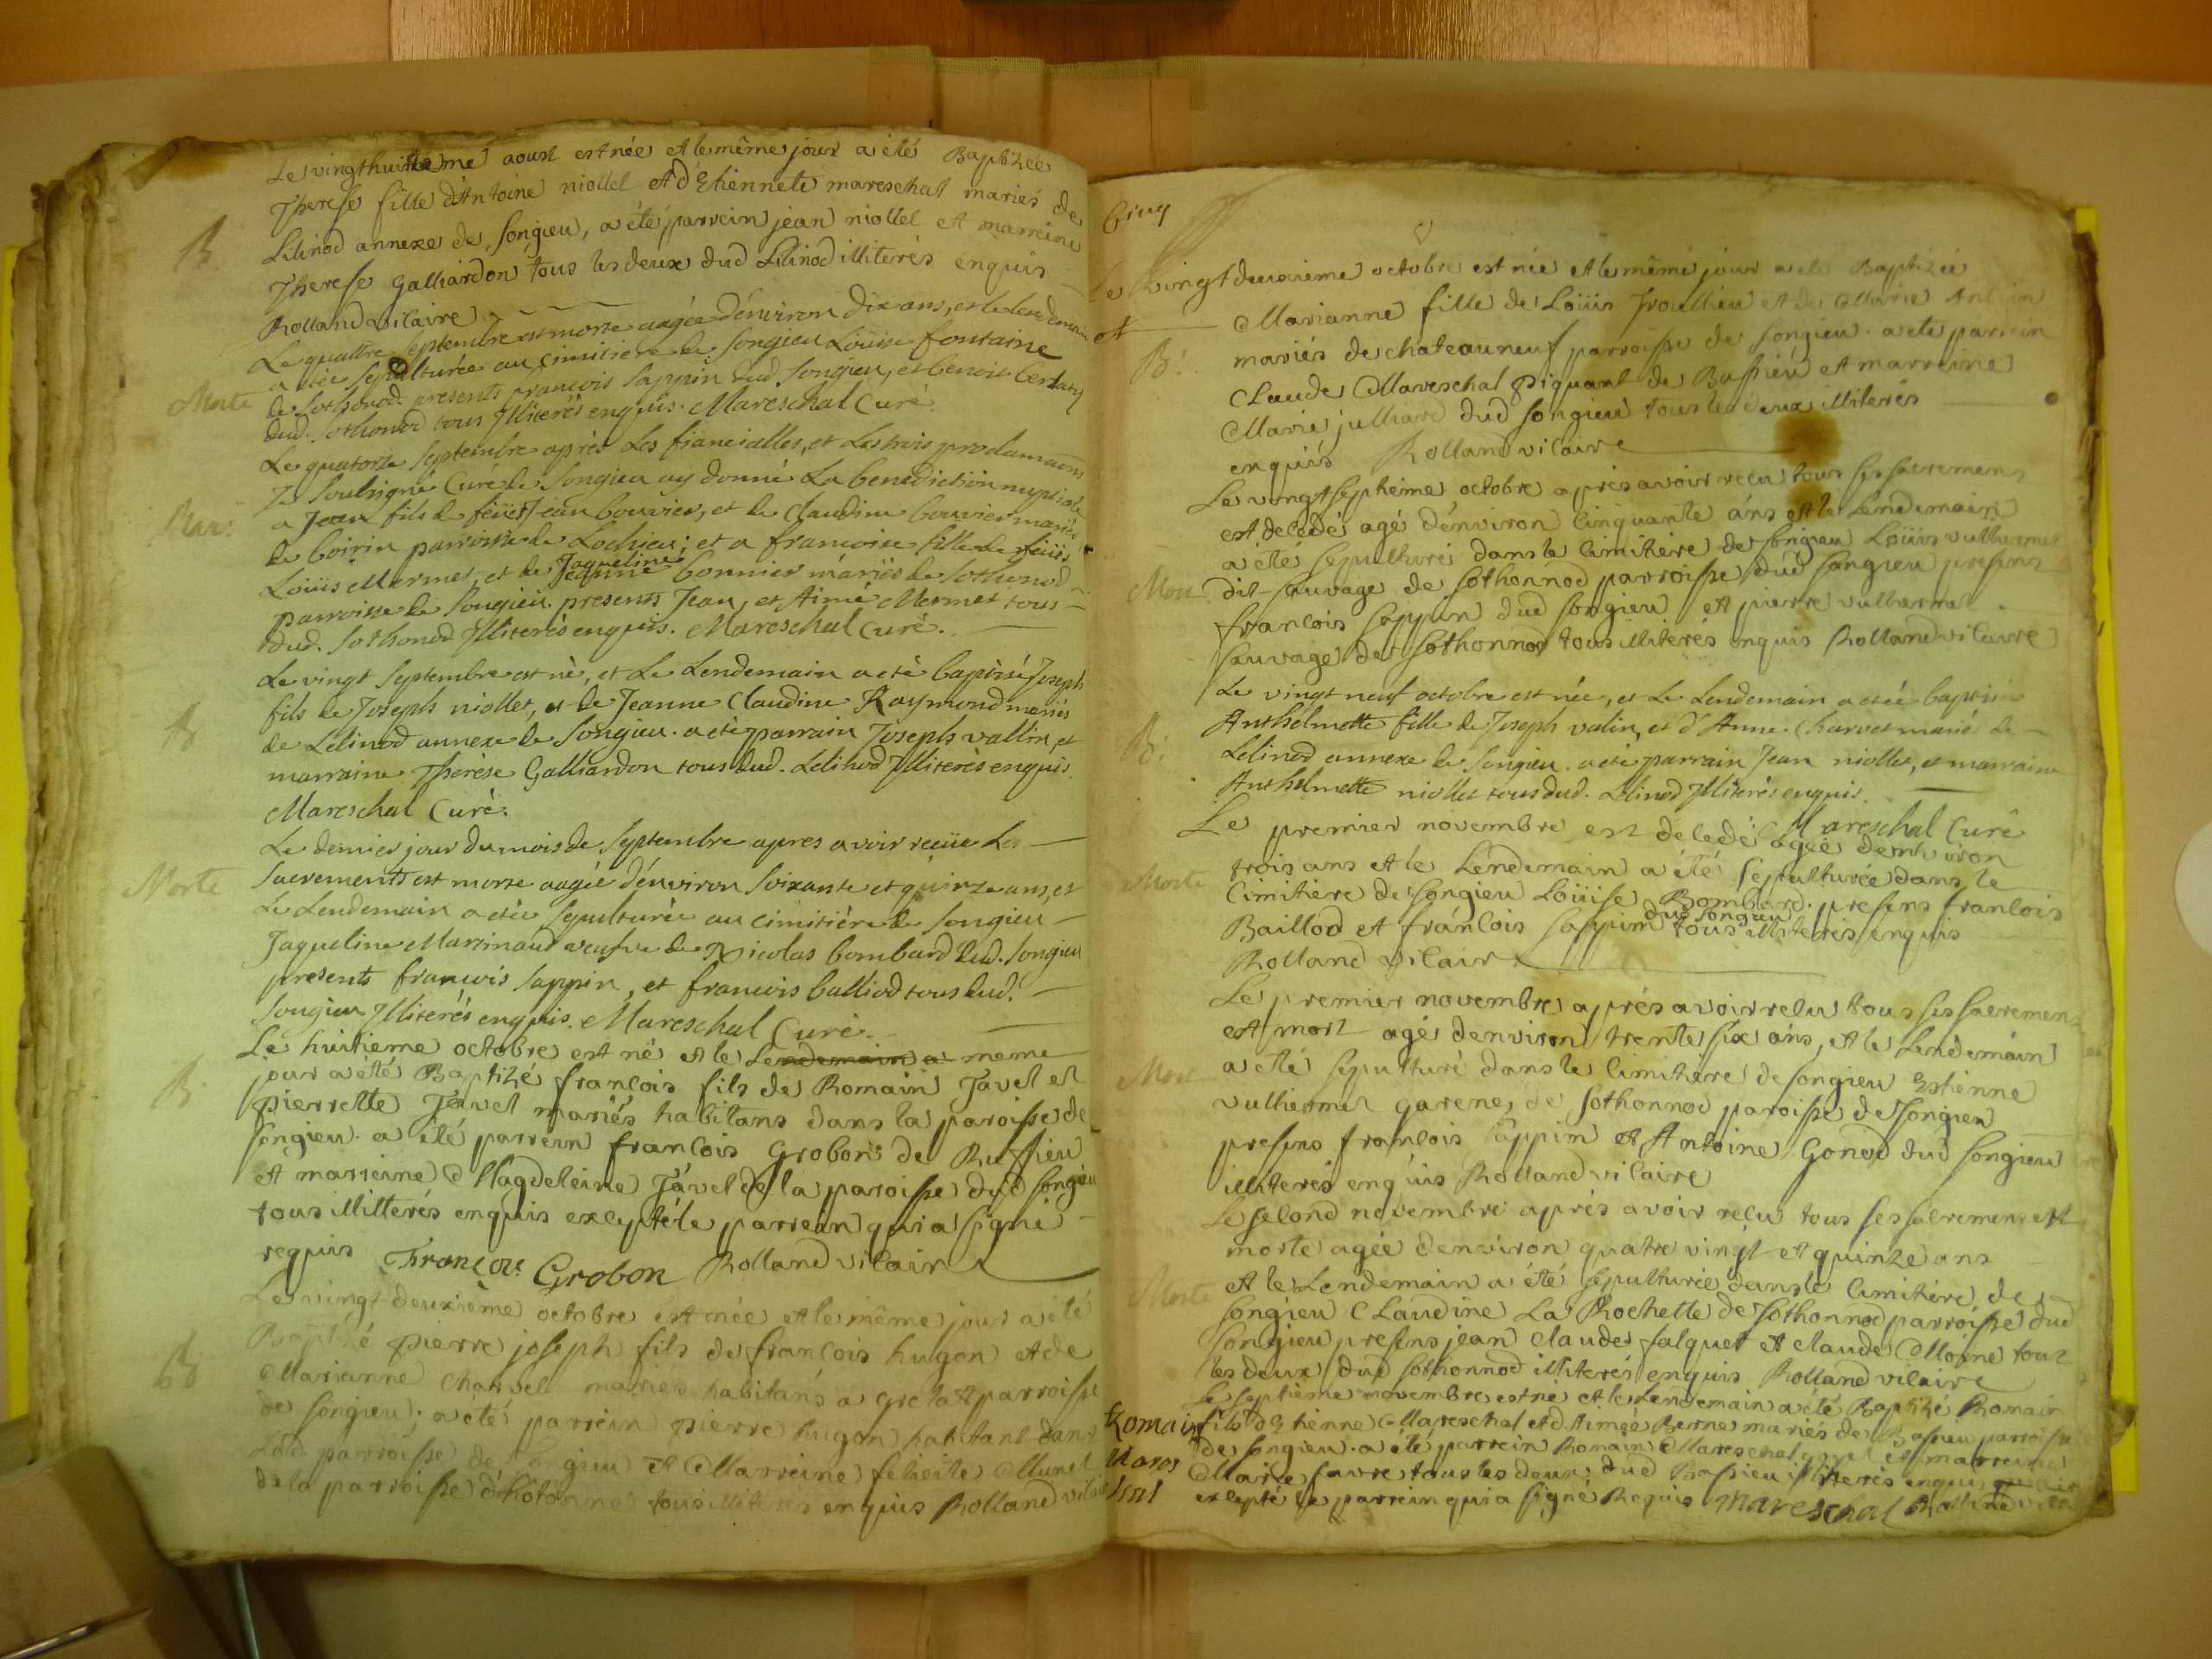 Le vingthuitieme aoust est née et le même jour a été Baptizée
B
Therese fille d'Antoine niollet et d'Ethiennete mareschal mariés de
Lilinod annexe de songieu, a été parrein jean niollet et marreine
Therese Galliardon tous les deux dud Lilinod illiterés enquis
Rolland vicaire
Le quattre septembre est morte aagée d'environ dix ans, et le lendemain
Morte
a étée sepulturée au cimitiere de songieu Loüise fontaine
de sothonod. presents françois sappin dud songieu, et benoit
dud. sothonod tous Illiterés enquis. Mareschal Curé
Le quatorze septembre après Les fiancialles, et Les trois proclamaons
Je soubsigné Curé de Songieu ay donné La benediction nuptiale
Mar:
a Jean fils de feüet Jean bouvier, et de Claudine bouvier mariés
de boirin parroisse de Lochieu; et a francoise fille de feüs
Loüis Mermet, et de Jeanne Jaqueline bonnier mariés de Sothonod
parroisse de Songieu. presents Jean, et Aimé Mermet tous
dud. Sothonod Illiterés enquis. Mareschal Curé.
Le vingt septembre est né, et Le Lendemain a eté baptisé Joseph
B
fils de Joseph niollet, et de Jeanne Claudine Raymond mariés
de Lelinod annexe de Songieu. a eté parrain Joseph vallin, et
marraine Thérèse Galliardon tous dud. Lelinod Illiterés enquis
Mareschal Curé.
Le dernier jour du mois de septembre apres avoir reçüe Les
Morte
sacrements est morte aagée d'environ soixante et quinze ans, et
Le Lendemain a étée sepulturée au cimitière de songieu
Jaqueline Martinaud veufve de Nicolas bombard dud. songieu
presents françois sappin, et françois balliod tous dud.
songieu Illiterés enquis. Mareschal Curé.
Le huitieme octobre est né et le Lendemain a meme
B
jour a été Baptizé françois fils de Romain Javel et
pierrette Javel mariés habitans dans la paroisse de
songieu. a été parrein françois Grobon de Ruffieu
et marreine Magdeleine Javel de la paroisse dud songieu
tous illitterés enquis excepté le parrein qui a signé
requis François Grobon Rolland vicaire
Le vingt deuxième octobre est née et le même jour a été
B
Baptizé pierre joseph fils de françois hugon et de
Marianne Charvet mariés habitans a parroisse
de songieu; a été parrein pierre hugon habitant dans
Lad parroisse de songieu et Marreine felicite Munet
de la parroisse d'hotonne tous illiterés enquis Rolland vicaire
Cinq
Le vingt deuxième octobre est née et le même jour a été Baptizée
et
Marianne fille de Loüis Troullieu et de Marie
B:
mariés de chateauneuf parroisse de songieu. a été parrein
Claude Mareschal piquant de Bassieu et marreine
Marie julliard dud songieu tous les deux illiterés
enquis Rolland vicaire
Le vingt sephième octobre après avoir recu tous ses sacremens
est decedé agé d'environ cinquante ans et le Lendemain
a été sepulturé dans le cimitière de songieu Loüis vulliermet
Mort
dit sauvage de sothonnod parroisse dud songieu presens
françois sappin dud songieu et pierre vulliermet
sauvage de sothonnod tous illiterés enquis Rolland vicaire
Le vingt neuf octobre est née, et Le Lendemain a étée baptisée
B:
Anthelmette fille de Joseph valin, et d'Anne Charvet marié de
Lelinod annexe de songieu. a été parrain Jean niollet, et marraine
Anthelmette niollet tous dud. Lelinod Illiterés enquis.
Mareschal Curé
Le premier novembre est decedé agée d'environ
Morte
trois ans et le Lendemain a été sepulturée dans le
cimitière de songieu Loüise Bombard. presens françois
Baillod et françois sappin dud songieu tous illiterés enquis
Rolland vicaire
Le premier novembre après avoir recu tous ses sacremens
est mort agé d'environ trente six ans, et le Lendemain
Mort
a été sepulturé dans le cimitière de songieu Estienne
vulliermet garene, de sothonnod paroisse de songieu
presens françois sappin et Antoine Gonod dud songieu
illiterés enquis Rolland vicaire
Le second novembre après avoir reçu tous ses sacremens est
morte agée d'environ quatre vingt et quinze ans
Morte
et le Lendemain a été sepulturée dans le cimitière de
songieu Claudine La Rochette de sothonnod parroisse dud
songieu presens jean claude falquet et claude Moine tout
les deux dud sothonnod illiterés enquis Rolland vicaire
Le septième novembre est né et le Lendemain a été Baptizé Romain
Romain
fils d'Ethienne Mareschal et d'Aimée Berne mariés de Bassieu parroisse
Mares
de songieu. a été parrein Romain Mareschal et marreine
chal
Marie favre tous les deux dud Bassieu illiterés enquis
excepté le parrein qui a signé Requis Mareschal Rolland vicaire